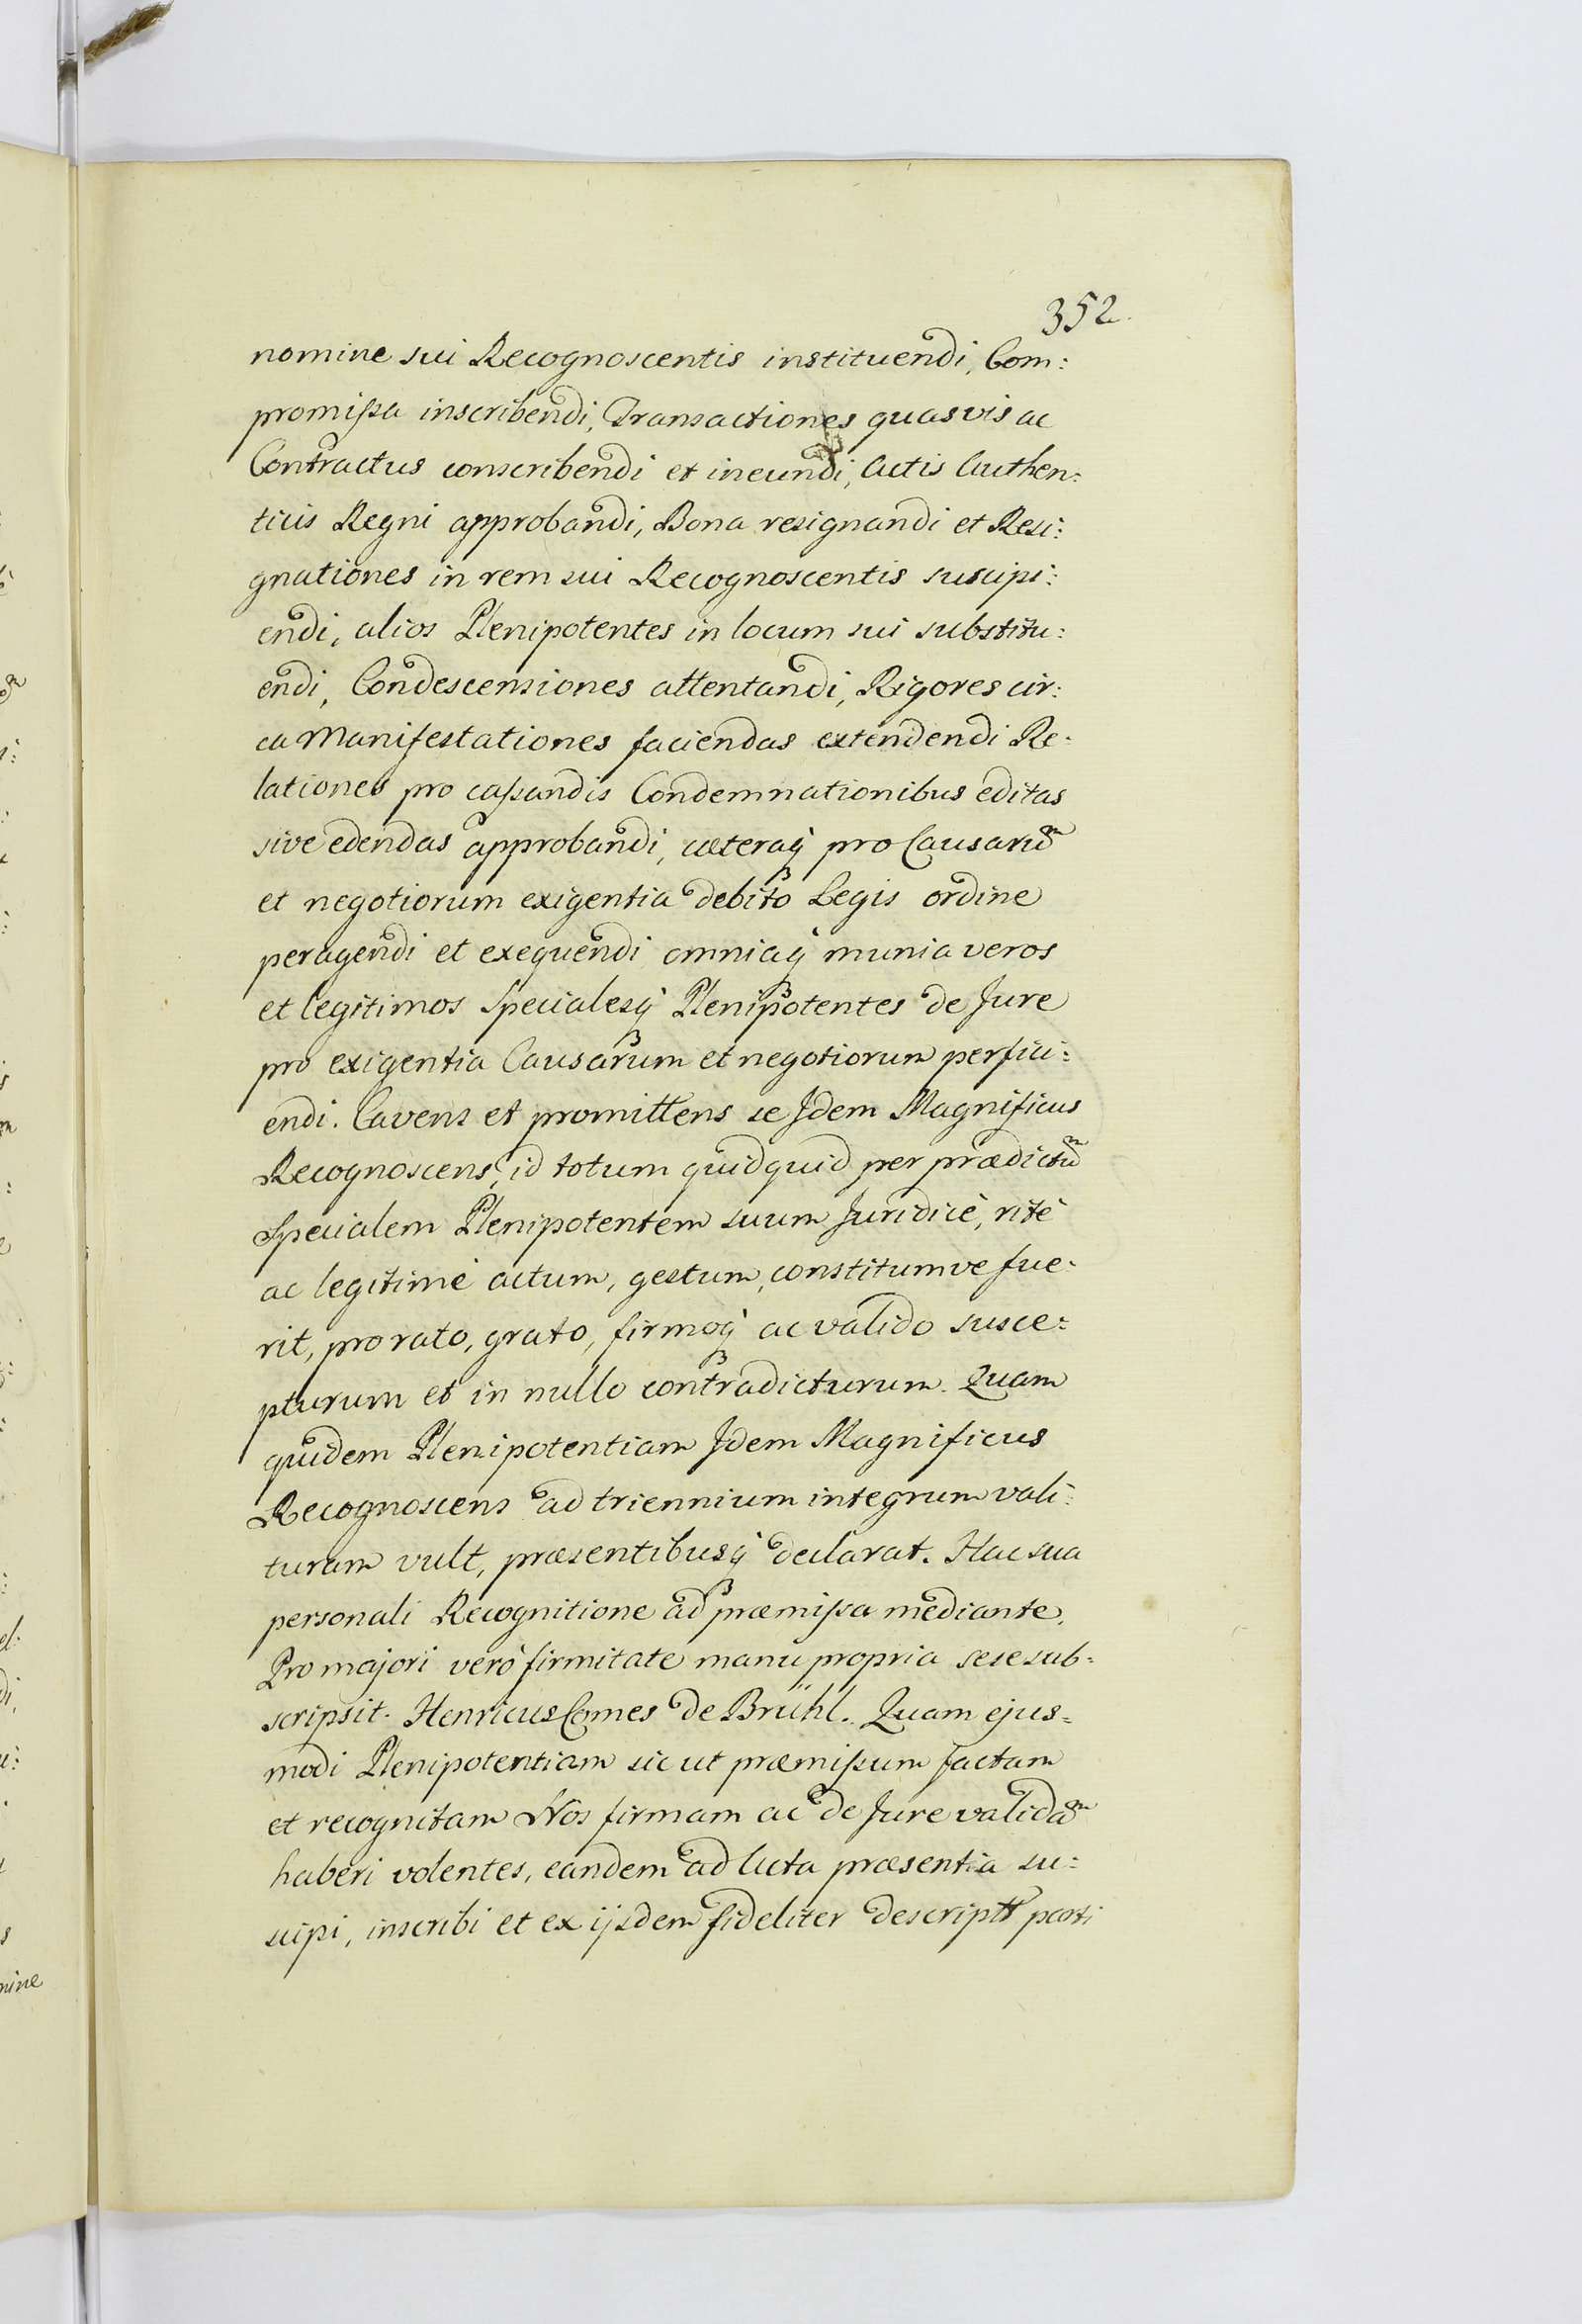 352.
nomine sui Recognoscentis instituendi, Com:
promißa inscribendi, Transactiones quasvis ac
Contractus conscribendi et ineundi, Actis Authen:
ticis Regni approbandi, Bona resignandi et Resi:
gnationes in rem sui Recognoscentis suscipi:
endi, alios Plenipotentes in locum sui substitu:
endi, Condescensiones attentandi, Rigores cir:
ca Manifestationes faciendas extendendi Re:
lationes pro caßandis Condemnationibus editas
sive edendas approbandi, cæteraq́ pro Causarum̃
et negotiorum exigentia debito Legis ordine
peragendi et exequendi omniaq́ munia veros
et legitimos Specialesq́ Plenipotentes de Jure
pro exigentia Causarum et negotiorum perfici:
endi. Cavens et promittens se Jdem Magnificus
Recognoscens, id totum quidquid per prædictum̃
Specialem Plenipotentem suum Juridicè, ritè
ac legitimè actum, gestum, constitumve fue:
rit, pro rato, grato, firmoq́ ac valido susce:
pturum et in nullo contradicturum. Quam
quidem Plenipotentiam Jdem Magnificus
Recognoscens ad triennium integrum vali:
turam vult, præsentibusq́ declarat. Hac sua
personali Recognitione ad præmißa mediante.
Pro majori verò firmitate manu propria sese sub:
scripsit. Henricus Comes de Brühl. Quam ejus=
modi Plenipotentiam sic ut præmißum factam
et recognitam Nos firmam ac de Jure validam̃
haberi volentes, eandem ad Acta præsentia su:
scipi, inscribi et ex ijsdem fideliter descriptã parti
mine